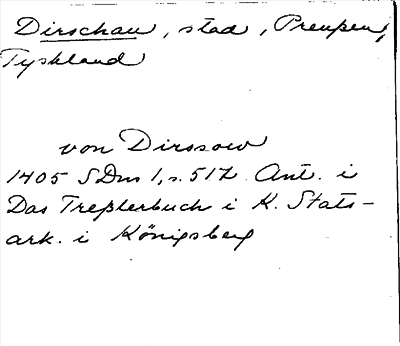 Dirschau, stad, Preuẞen,
Tyskland
von Dirssow
1405 SDns 1, s. 517. Ant. i
Das Treßlerbuch i K. Stats-
ark. i Königsberg